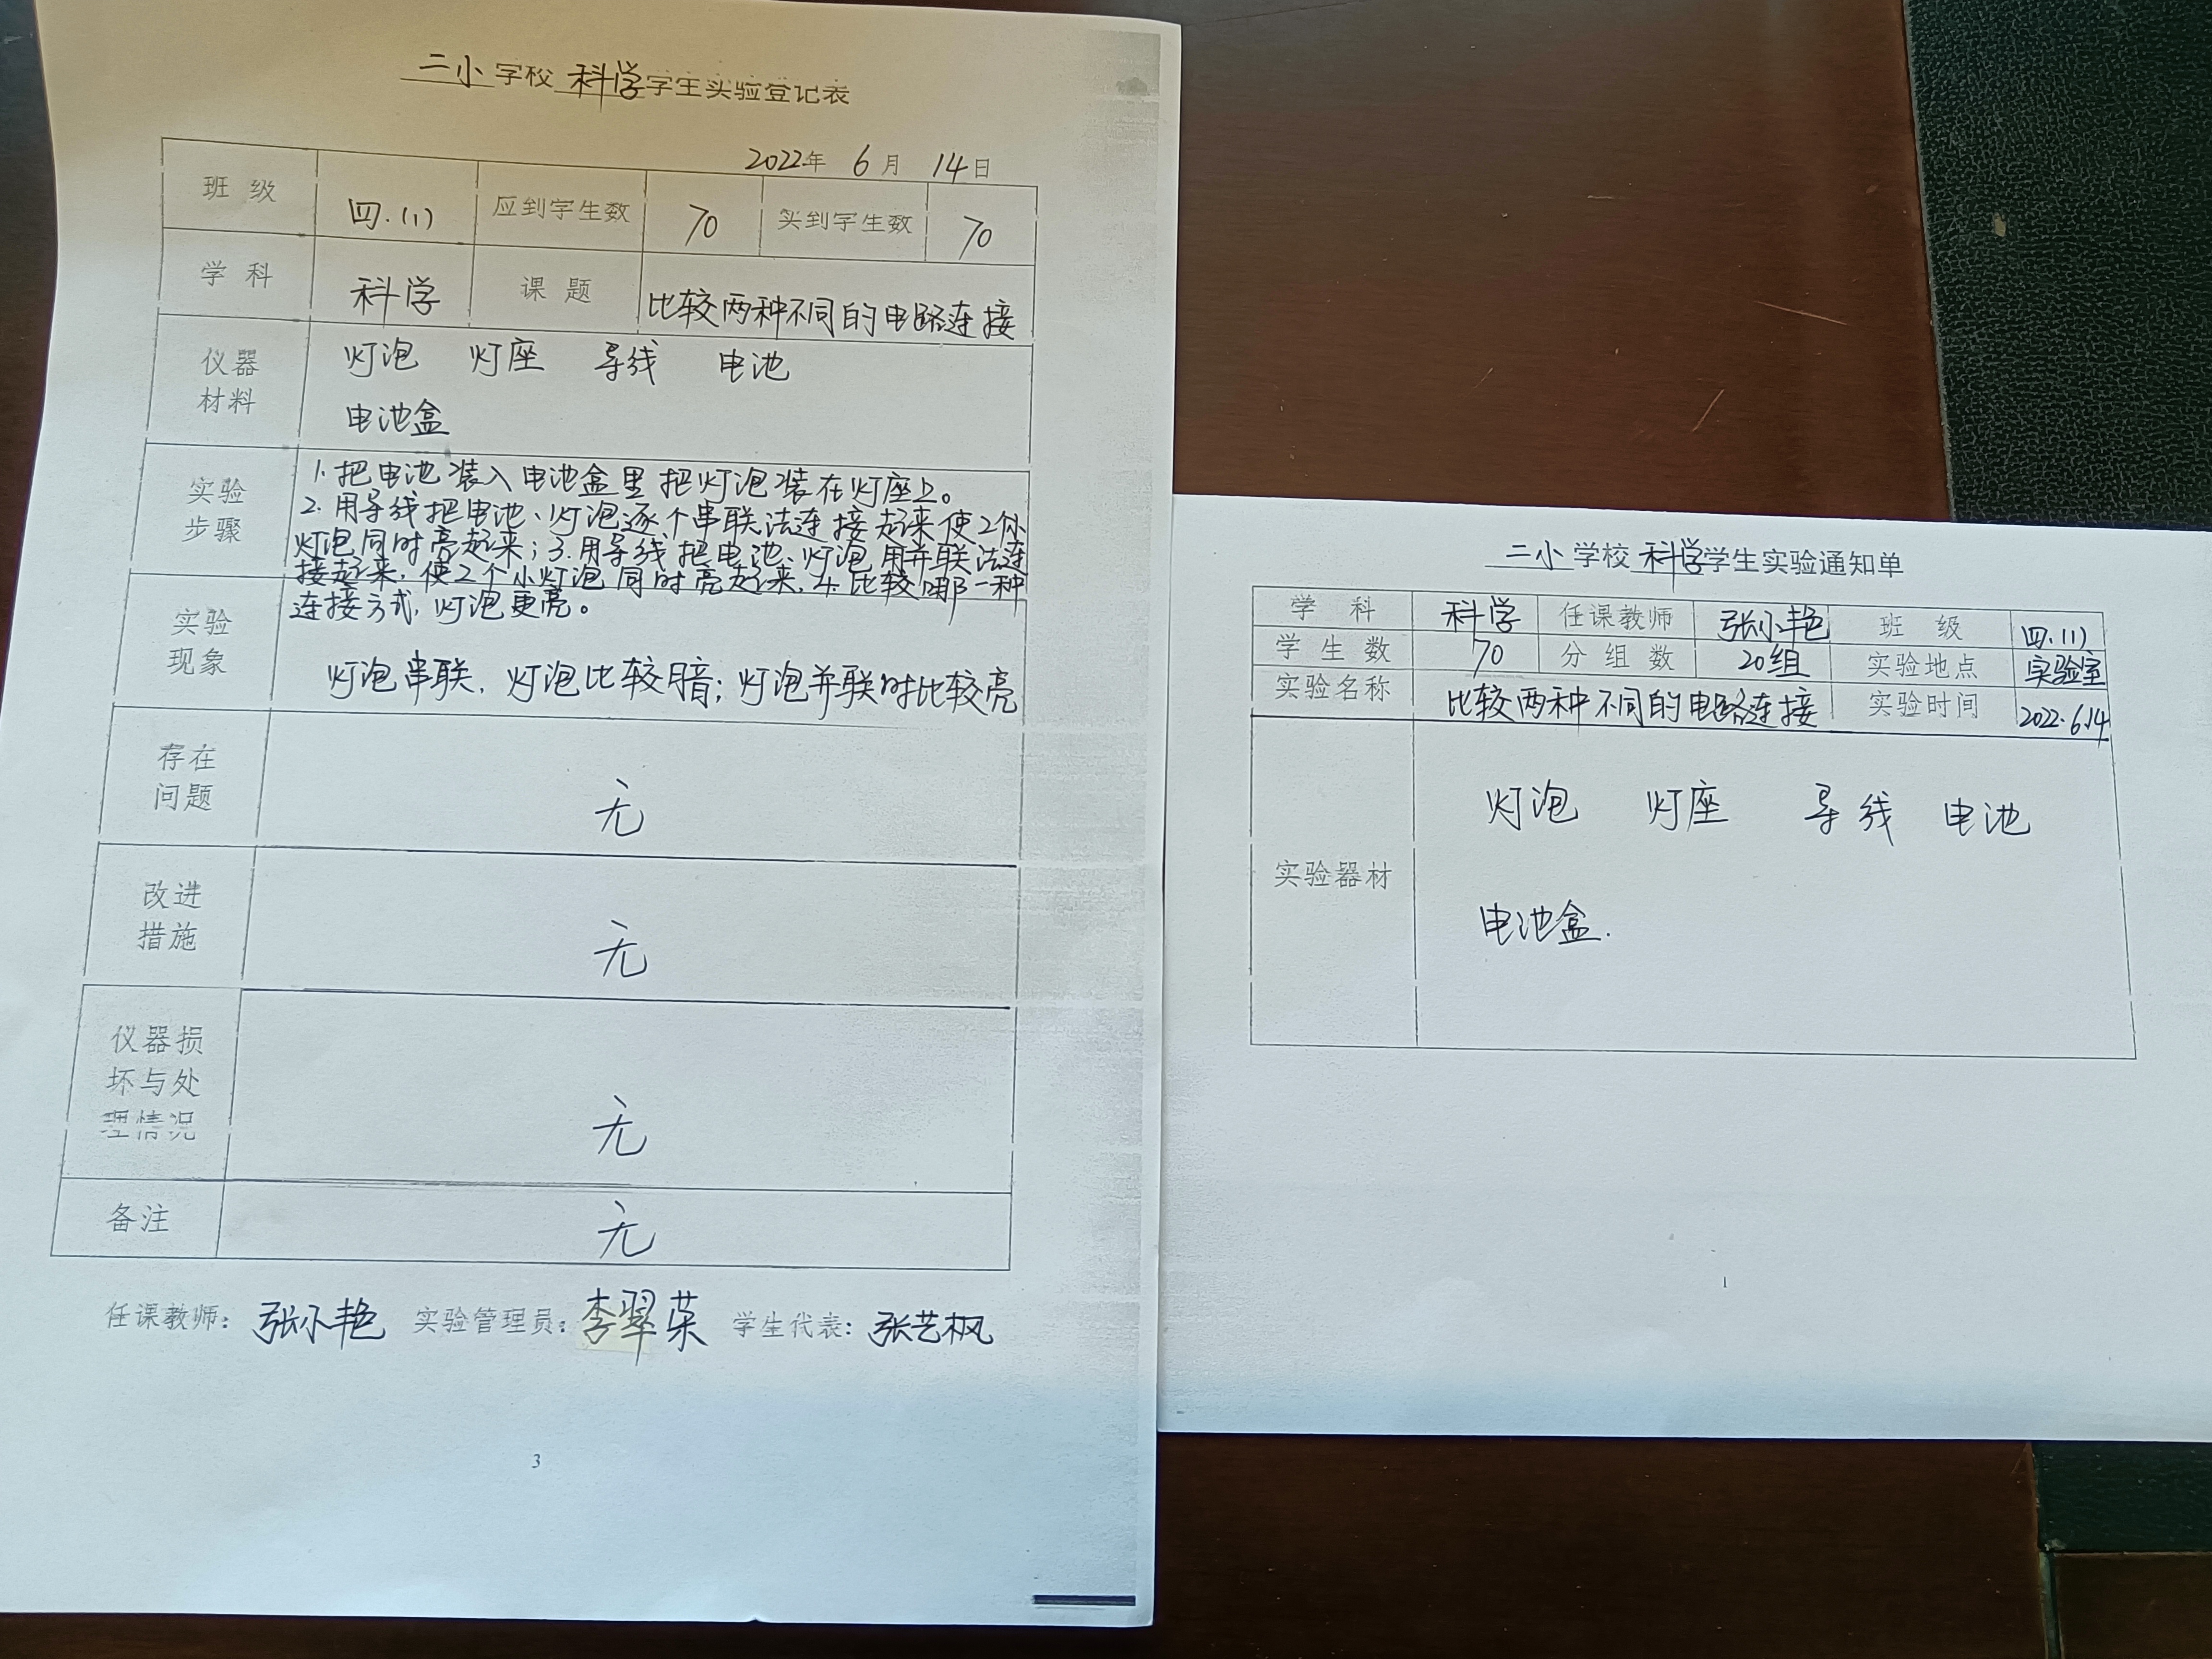 二小学校科学学生实验登记表
2022年 6月 14日
班 级 四.(1) 应到学生数 70 实到学生数 70
学 科 科学 课 题 比较两种不同的电路连接
仪器材料 灯泡 灯座 导线 电池
电池盒
实验步骤
1.把电池装入电池盒里把灯泡装在灯座上。
2.用导线把电池、灯泡逐个串联法连接起来使2个
灯泡同时亮起来;3.用导线把电池、灯泡用并联法连
接起来,使2个小灯泡同时亮起来.4.比较哪一种
连接方式,灯泡更亮。
实验现象
灯泡串联,灯泡比较暗;灯泡并联时比较亮
存在问题 无
改进措施 无
仪器损坏与处理情况 无
备注 无
任课教师:张小艳 实验管理员:李翠荣 学生代表:张艺枫
3
二小学校科学学生实验通知单
学 科 科学 任课教师 张小艳 班 级 四.(1)
学 生 数 70 分 组 数 20组 实验地点 实验室
实验名称 比较两种不同的电路连接 实验时间 2022.6.14
实验器材
灯泡 灯座 导线 电池
电池盒.
1